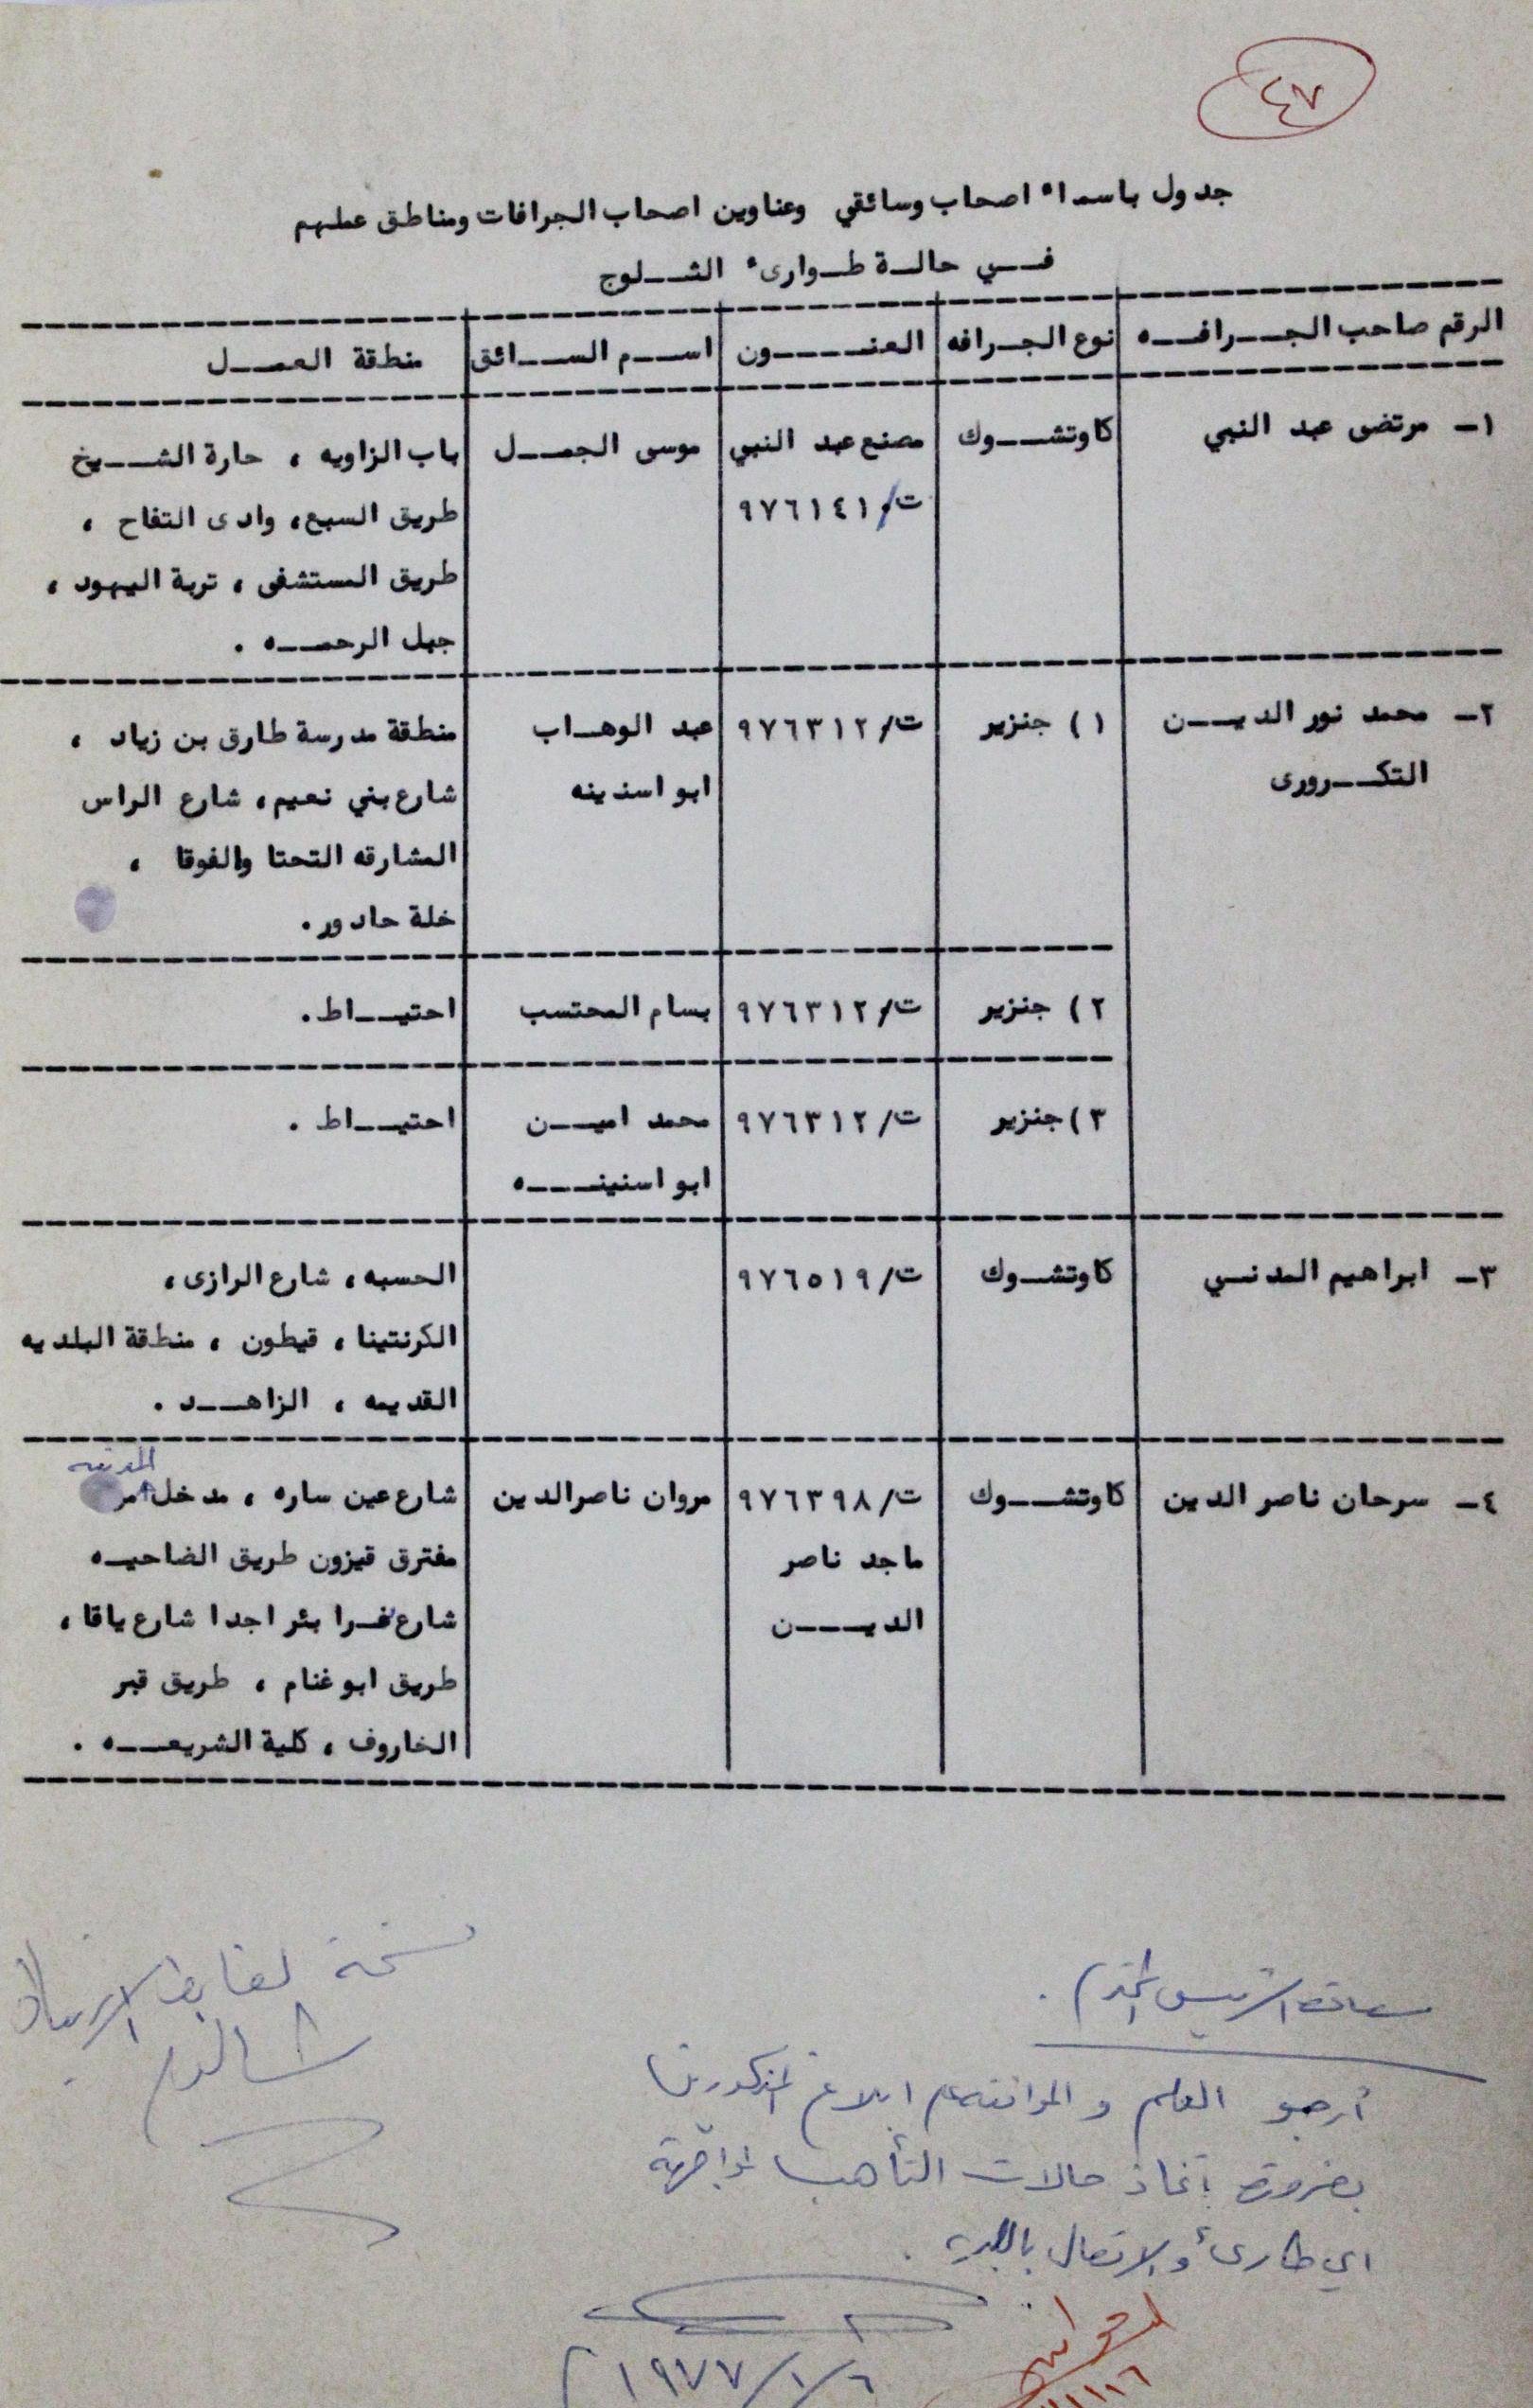 ٤٧
جدول باسماء اصحاب وسائقي وعناوين اصحاب الجرافات ومناطق عملهم
في حالة طوارىء الثلوج
الرقم صاحب الجرافه نوع الجرافه العنون اسم السائق منطقة العمل
١- مرتضى عبد النبي كاوتشوك مصنع عبد النبي موسى الجمل باب الزاويه ، حارة الشيخ
ت/٩٧٦١٤١ طريق السبع، وادى التفاح ،
طريق المستشفى ، تربة اليهود ،
جبل الرحمه .
٢- محمد نور الدين ١) جنزير ت/٩٧٦٣١٢ عبد الوهاب منطقة مدرسة طارق بن زياد ،
التكرورى ابو اسنينه شارع بني نعيم، شارع الراس
المشارقه التحتا والفوقا ،
خلة حادور.
٢) جنزير ت/٩٧٦٣١٢ بسام المحتسب احتياط.
٣) جنزير ت/٩٧٦٣١٢ محمد امين احتياط .
ابو اسنينه
٣- ابراهيم المدني كاوتشوك ت/٩٧٦٥١٩ الحسبه، شارع الرازى،
الكرنتينا ، قيطون ، منطقة البلديه
القديمه ، الزاهد .
المدينه
٤- سرحان ناصر الدين كاوتشوك ت/٩٧٦٣٩٨ مروان ناصرالدين شارع عين ساره ، مدخل
ماجد ناصر مفترق قيزون طريق الضاحيه
الدين شارع نمرا بئر اجدا شارع يافا ،
طريق ابو غنام ، طريق قبر
الخاروف ، كلية الشريعه .
سعادة الرئيس المحترم .
نسخة
أرجو العلم و الموافقة على ابلاغ المذكورين
بضرورة اتخاذ حالات التأهب لمواجهة
اي طارىء والاتصال بالبلدية .
١٩٧٧/١/٦